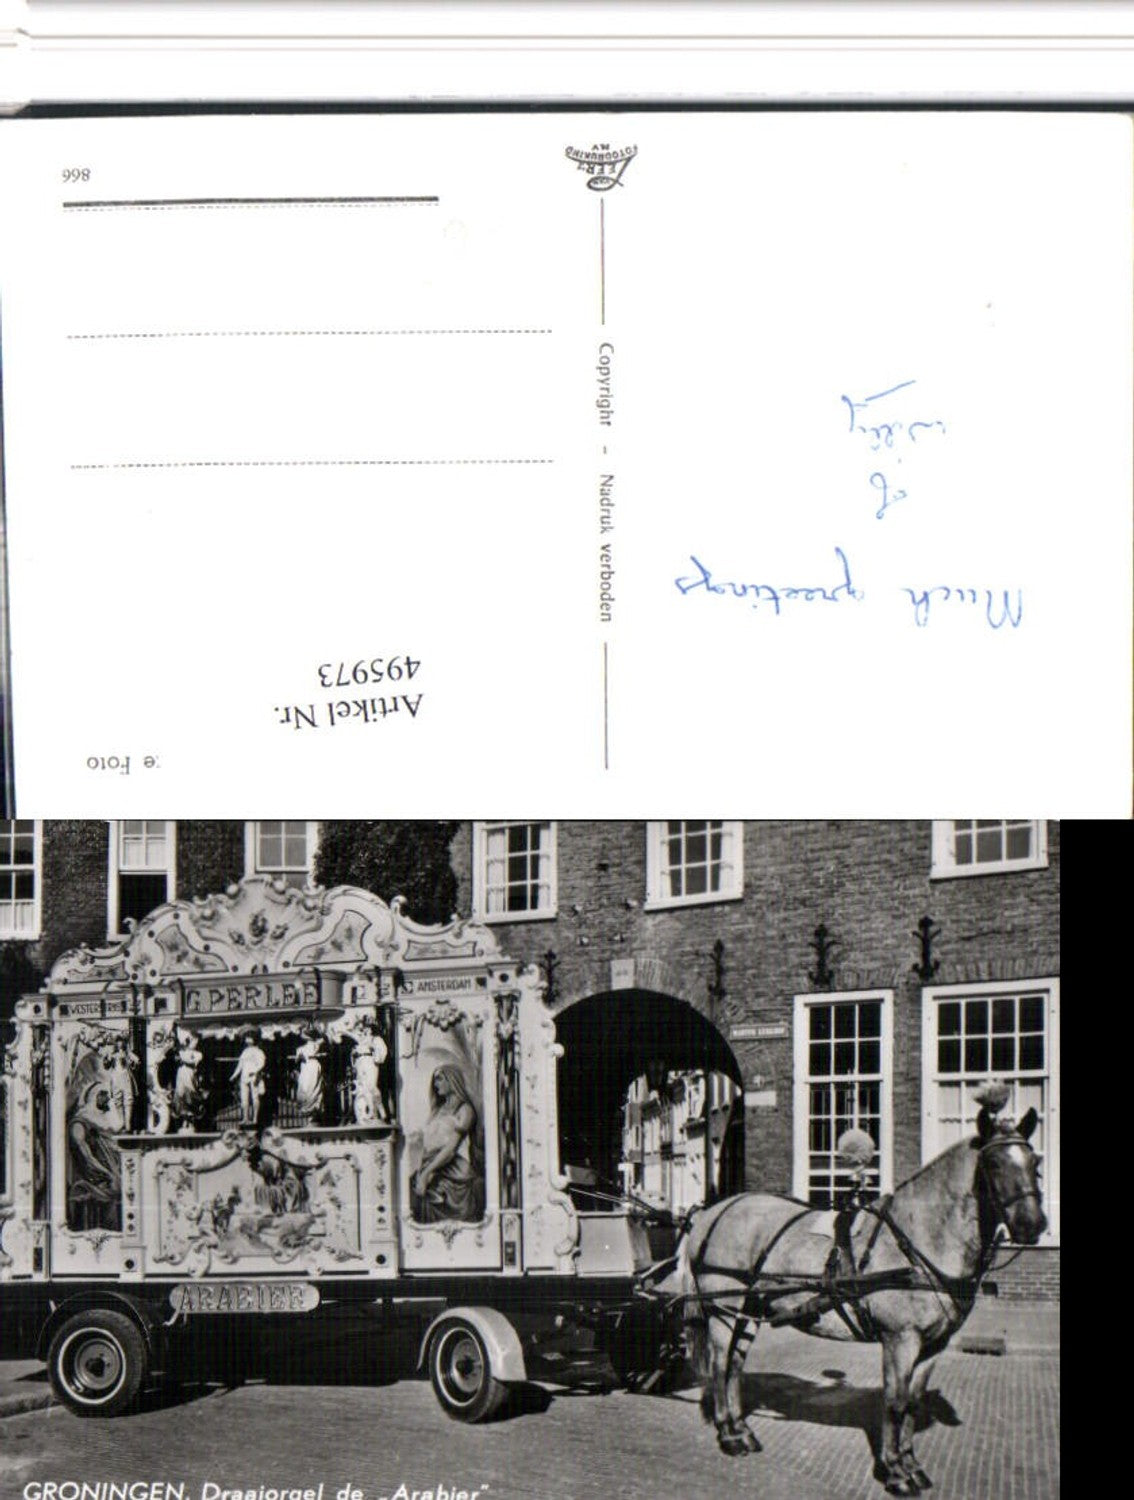 :e Foto
Artikel Nr.
495973
Much greetings
of
Willy
Copyright - Nadruk verboden
VAN
LEER'S
FOTODRUKIND
N.V
866
G.PERLEE
AMSTERDAM
ARABIER
GRONINGEN. Draaiorgel de „Arabier”